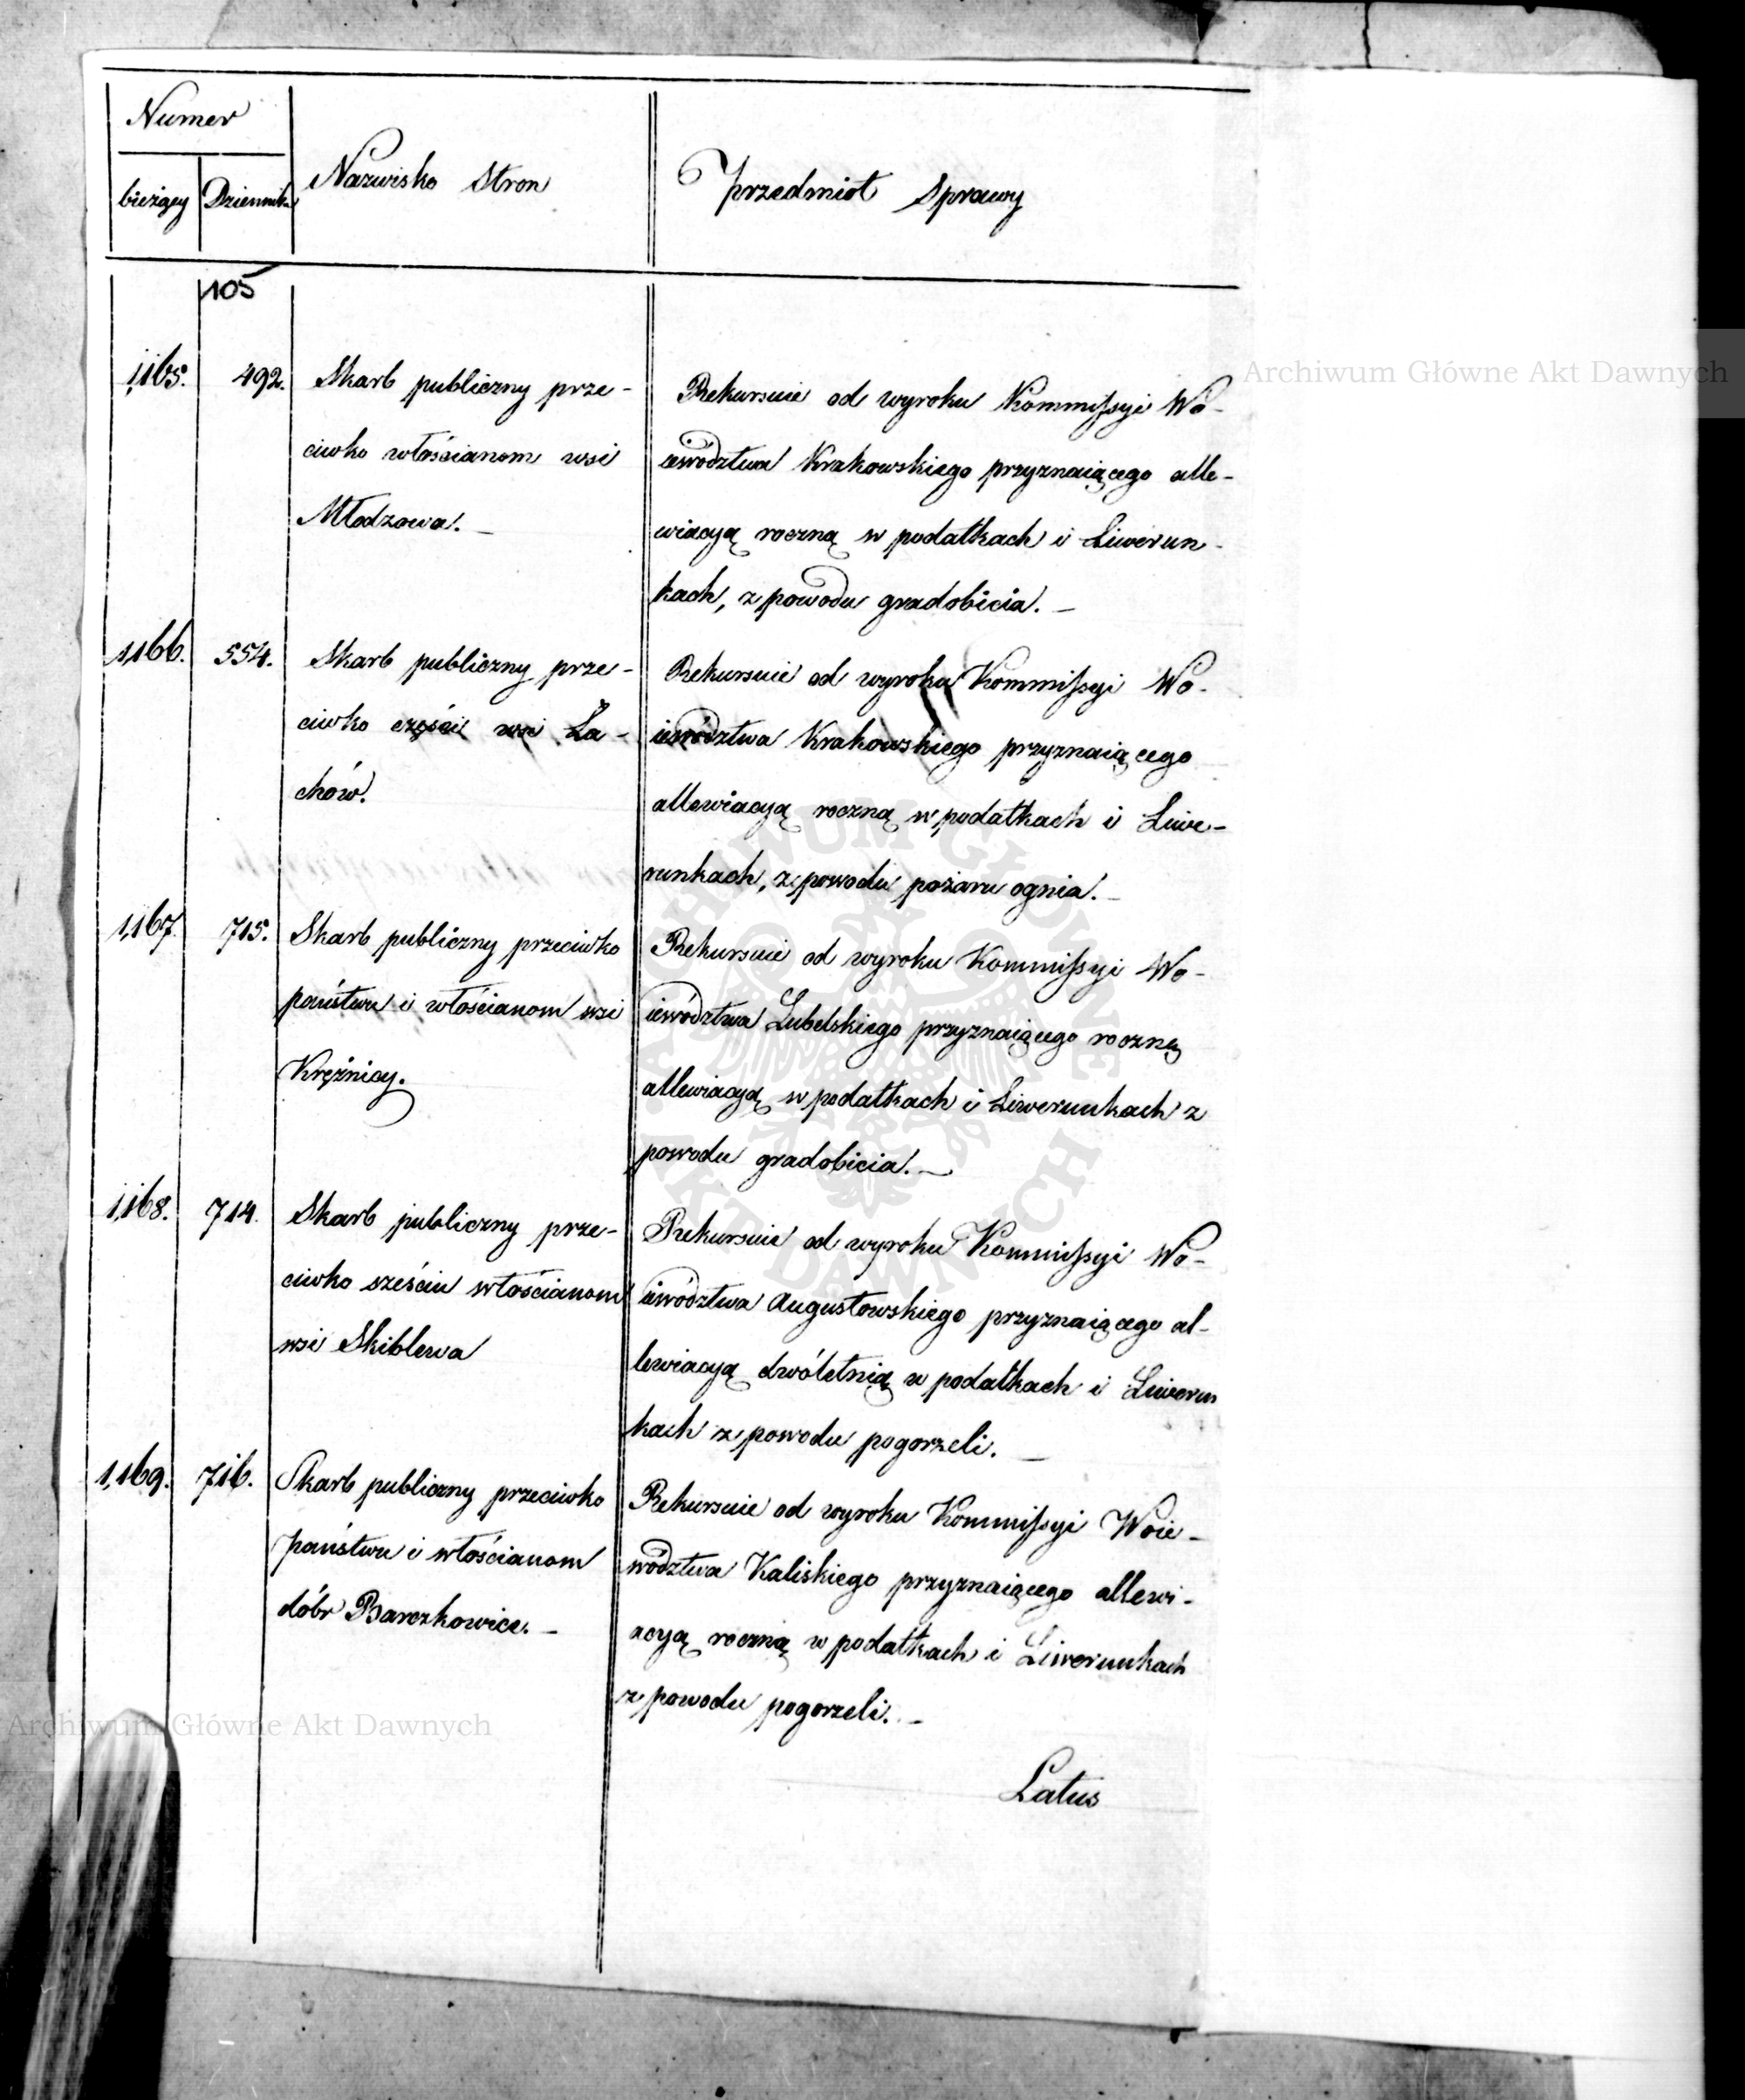 Numer
bieżący Dziennika
Nazwisko Stron
Przedmiot Sprawy
105
1,165. 492.
Skarb publiczny prze-
ciwko włościanom wsi
Młodzowa. -
Rekursuie od wyroku Kommissyi Wo-
iewództwa Krakowskiego przyznaiącego alle-
wiacyą roczną w podatkach i Liwerun-
kach, z powodu gradobicia. -
1,166. 554.
Skarb publiczny prze-
ciwko części wsi La-
chów.
Rekursuie od wyroku Kommissyi Wo-
iewództwa Krakowskiego przyznaiącego
allewiacyą roczną w podatkach i Liwe-
runkach, z powodu pożaru ognia. -
1,167. 715.
Skarb publiczny przeciwko
państwu i włościanom wsi
Krężnicy.
Rekursuie od wyroku Kommissyi Wo-
iewództwa Lubelskiego przyznaiącego roczną
allewiacyą w podatkach i Liwerunkach z
powodu gradobicia. -
1,168. 714.
Skarb publiczny prze-
ciwko sześciu włościanom
wsi Skiblewa
Rekursuie od wyroku Kommissyi Wo-
iewództwa Augustowskiego przyznaiącego al-
lewiacyą dwóletnią w podatkach i Liwerun
kach z powodu pogorzeli. -
1,169. 716.
Skarb publiczny przeciwko
państwu i włościanom
dóbr Barczkowice. -
Rekursuie od wyroku Kommissyi Woie-
wództwa Kaliskiego przyznaiącego allewi-
acyą roczną w podatkach i Liwerunkach
z powodu pogorzeli. -
Latus
Archiwum Główne Akt Dawnych
Archiwum Główne Akt Dawnych
ARCHIWUM GŁÓWNE AKT DAWNYCH